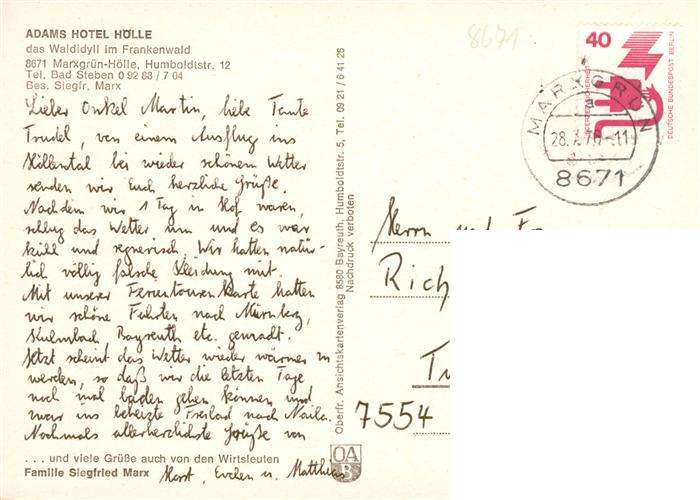 ADAMS HOTEL HÖLLE
das Waldidyll im Frankenwald
8671 Marxgrün-Hölle, Humboldtstr. 12
Tel. Bad Steben 0 92 88 / 7 04
Bes. Siegfr. Marx
Lieber Onkel Martin, liebe Tante
Trudel, von einem Ausflug ins
Höllental bei wieder schönem Wetter
senden wir Euch herzliche Grüße.
Nachdem wir 1 Tag in Hof waren,
schlug das Wetter um und es war
kühl und regnerisch. Wir hatten natür-
lich völlig falsche Kleidung mit.
Mit unserer Ferientourenkarte hatten
wir schöne Fahrten nach Nürnberg,
Kulmbach, Bayreuth etc. gemacht.
Jetzt scheint das Wetter wieder wärmer zu
werden, so daß wir die letzten Tage
noch mal baden gehen können und
zwar ins beheizte Freibad nach Naila.
Nochmals allerherzlichste Grüße von
. . . und viele Grüße auch von den Wirtsleuten
Familie Siegfried Marx
Horst, Evchen u. Matthias
Oberfr. Ansichtskartenverlag 8580 Bayreuth, Humboldtstr. 5, Tel. 09 21 / 6 41 26
Nachdruck verboten
OA
B
8671
40
DEUTSCHE BUNDESPOST BERLIN
MARXGRÜN
a
28.7.76-11
8671
Herrn und Fr
Rich
7554